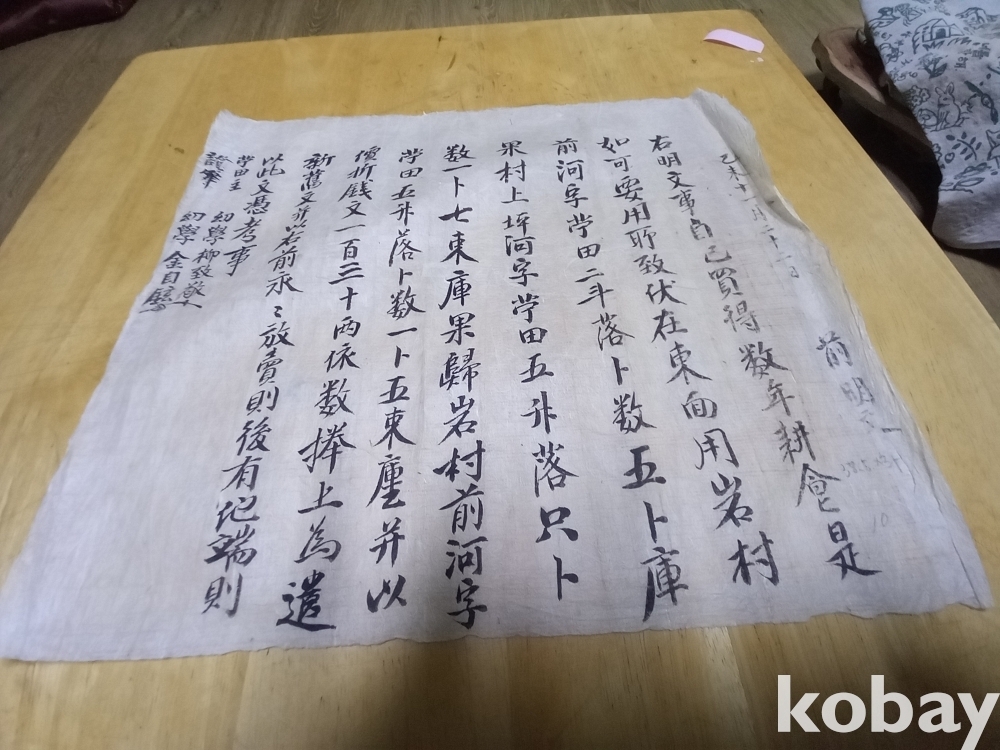 己未十一月二十一日 前明文
右明文事自己買得数年耕食是
如可要用所致伏在東面用岩村
前河字畓田二斗落卜数五卜庫
果村上坪河字畓田五升落只卜
数一卜七束庫果歸岩村前河字
畓田五升落卜数一卜五束庫并以
價折錢文一百三十両依数捧上為遣
新舊文并以右前永〻放賣則後有 端則
以此文憑考事
畓田主 幼學 柳致敬
證筆 幼學 金自
10
kobay